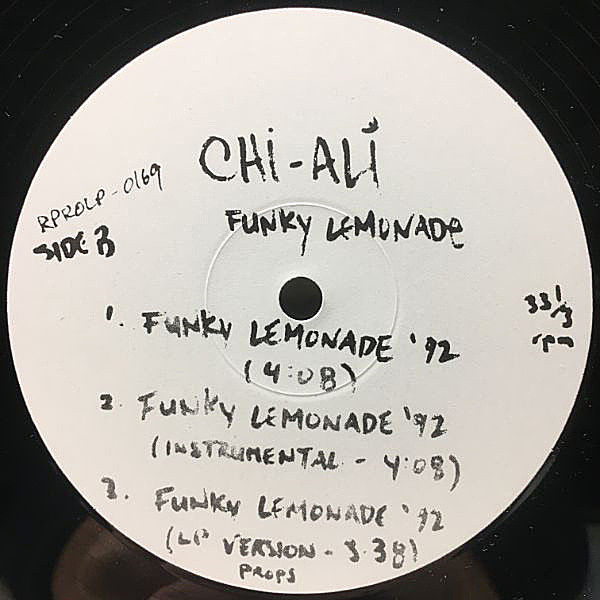 CHI-ALI
RPROLP-0169
SIDE B
FUNKY LEMONADE
33 1/3
rpm
1. FUNKY LEMONADE '92
(4:08)
2. FUNKY LEMONADE '92
(INSTRUMENTAL - 4:08)
3. FUNKY LEMONADE '92
(LP VERSION - 3:38)
PROPS